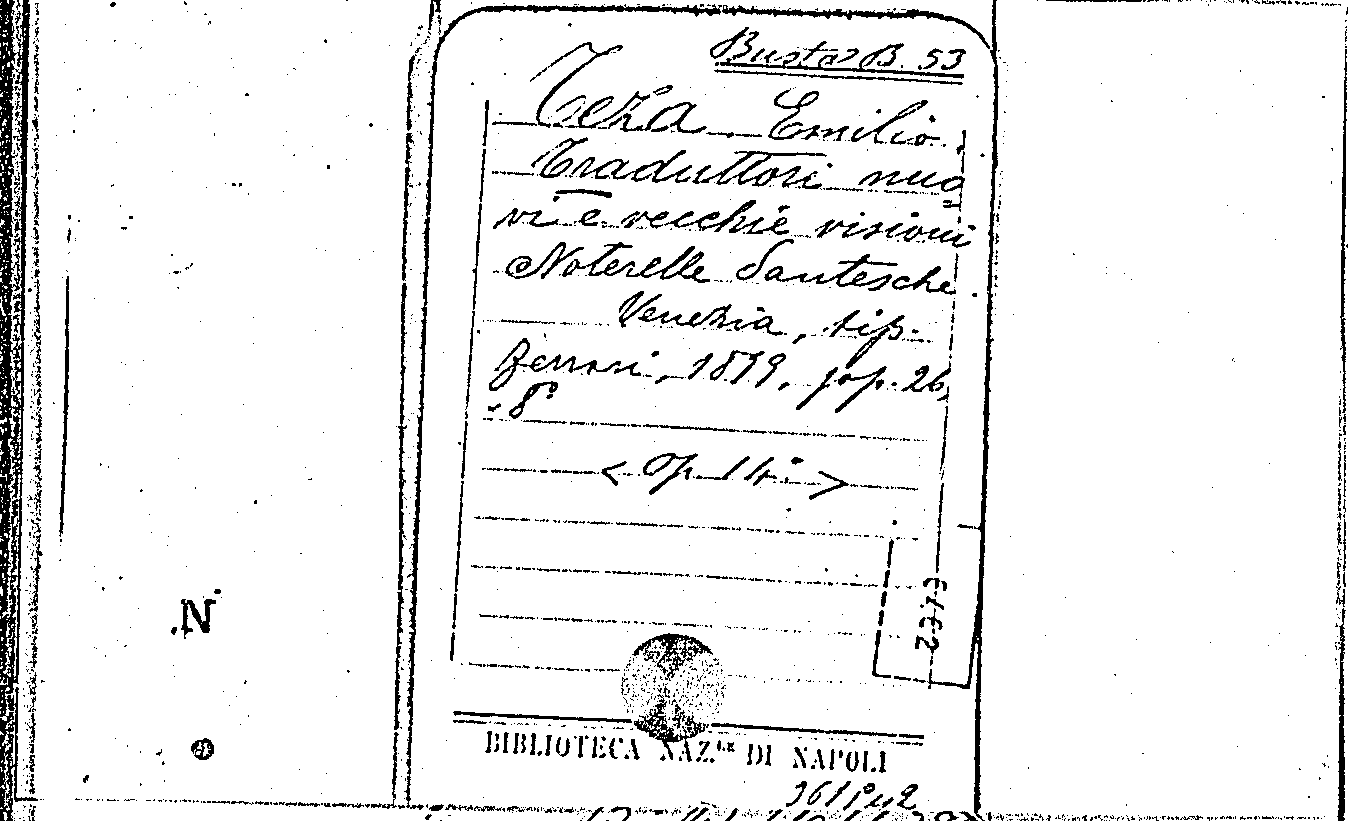 Busta B. 53
Teza Emilio.
Traduttori nuo
vi e vecchie visioni
Noterelle Dantesche.
Venezia, tip.
Ferrari, 1879, pp. 26,
8°
< Op. 14: >
BIBLIOTECA NAZ.LE DI NAPOLI
N.